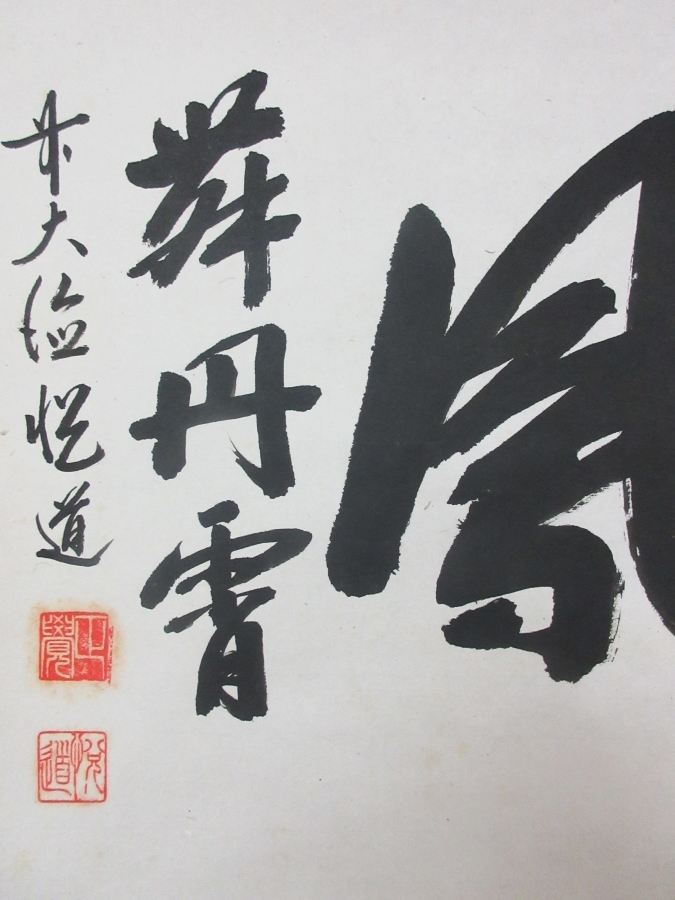 鳳
舞丹霄
前大徳悦道
悦道